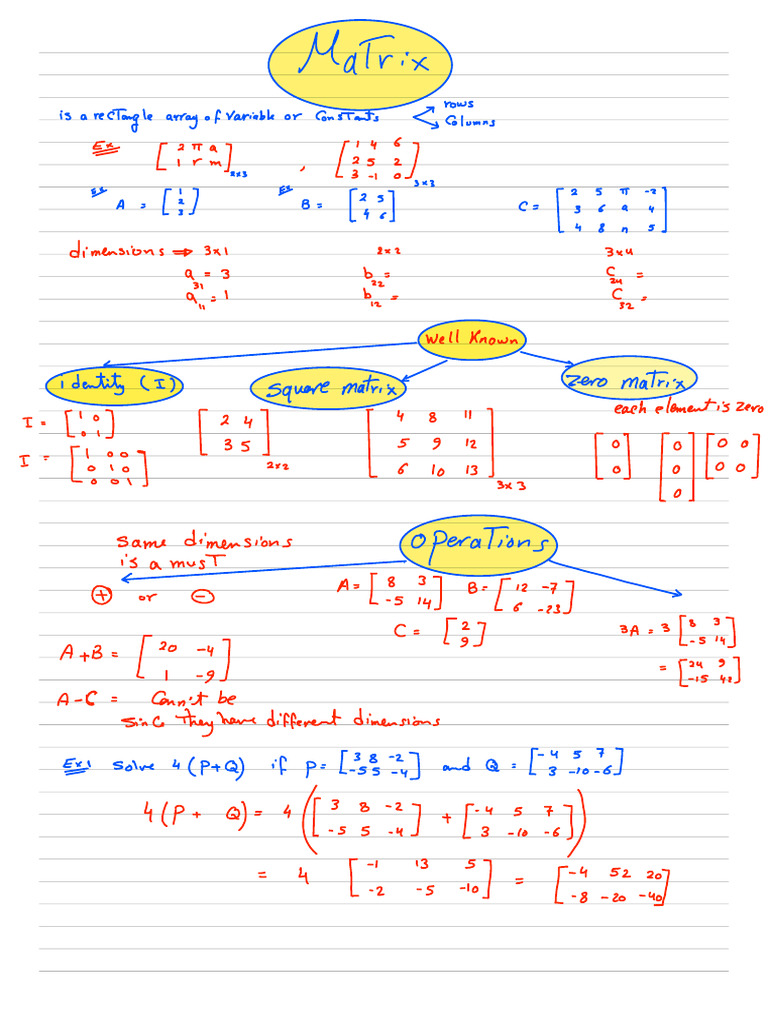 Matrix
is a rectangle array of variable or constants rows
columns
Ex [2 π a
1 r m] 2x3 , [1 4 6
2 5 2
3 -1 0] 3x3
Ex A = [1
2
3] Ex B = [2 5
4 6] C = [2 5 π -2
3 6 a 4
4 8 n 5]
dimensions ⇒ 3x1 2x2 3x4
a31 = 3 b22 = C24 =
a11 = 1 b12 = C32 =
Well Known
identity (I) square matrix zero matrix
each element is zero
I = [1 0
0 1] [2 4
3 5] 2x2 [4 8 11
5 9 12
6 10 13] 3x3 [0
0] [0
0
0] [0 0
0 0]
I = [1 0 0
0 1 0
0 0 1]
Operations
same dimensions
is a must
+ or -
A = [8 3
-5 14] B = [12 -7
6 -23]
C = [2
9]
3A = 3 [8 3
-5 14]
= [24 9
-15 42]
A+B = [20 -4
1 -9]
A-C = Cann't be
sinc they have different dimensions
Ex1 solve 4(P+Q) if P = [3 8 -2
-5 5 -4] and Q = [-4 5 7
3 -10 -6]
4(P + Q) = 4([3 8 -2
-5 5 -4] + [-4 5 7
3 -10 -6])
= 4 [-1 13 5
-2 -5 -10] = [-4 52 20
-8 -20 -40]